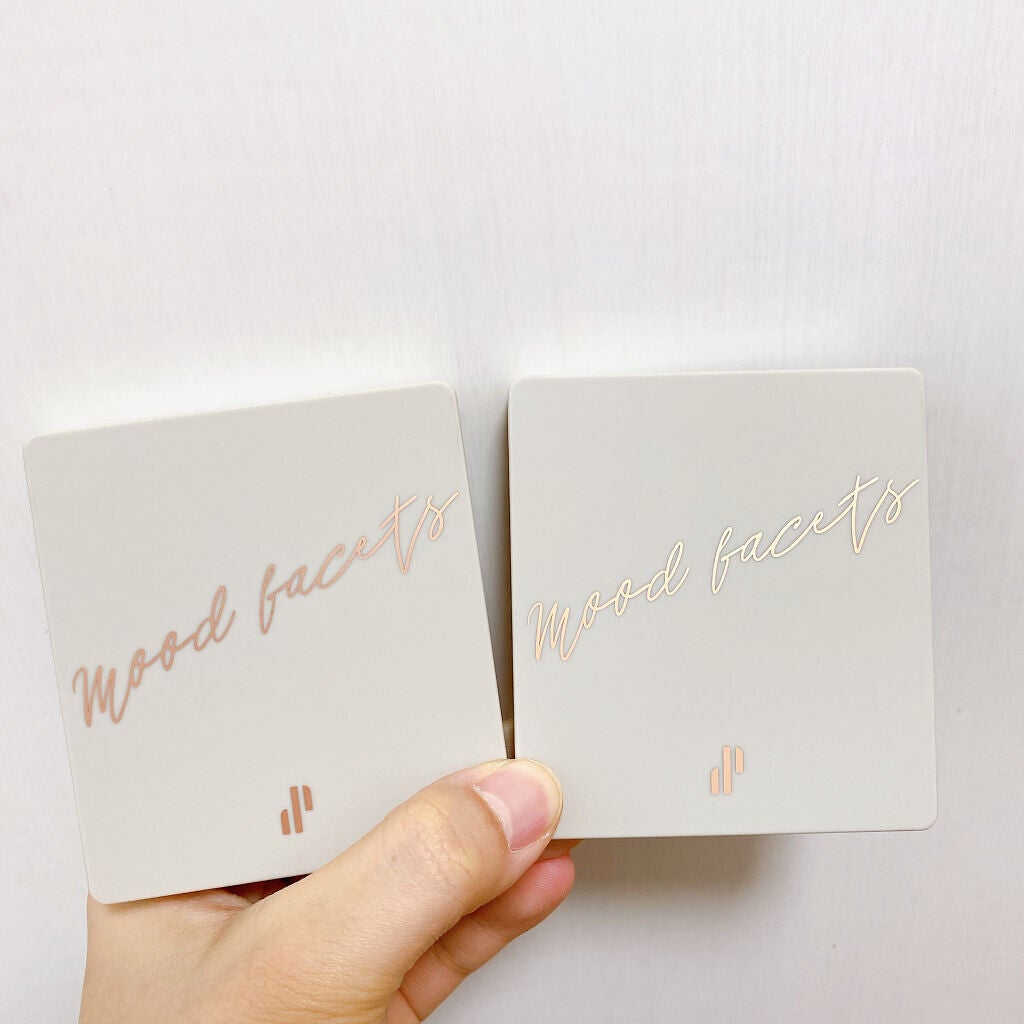 Mood facets
Mood facets